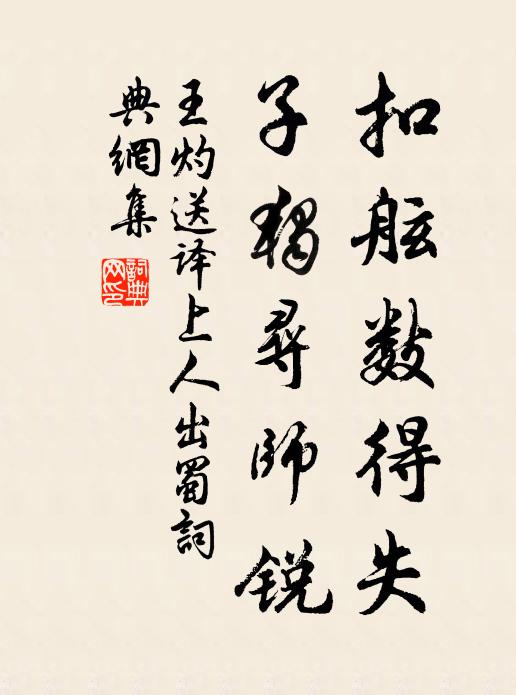 扣舷数得失
子独寻師锐
王灼送译上人出蜀詞
典網集
詞典
网印